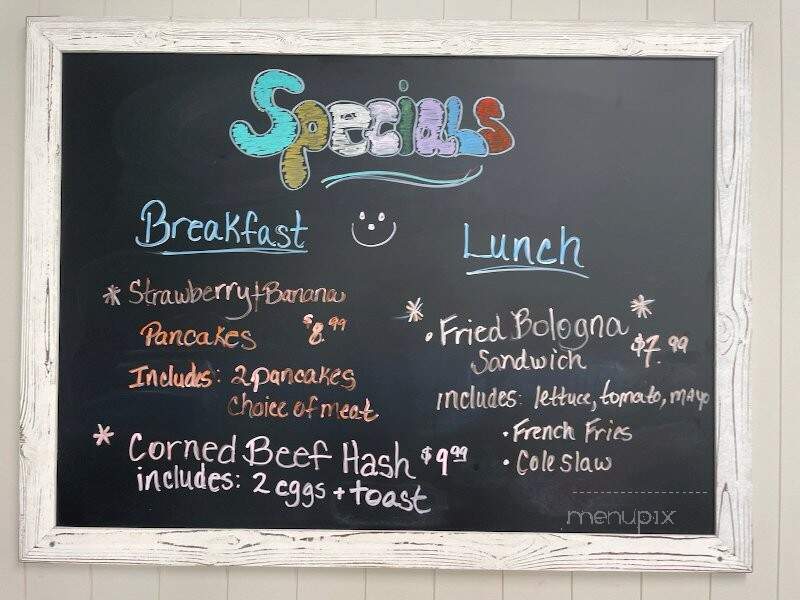 Specials
Breakfast
* Strawberry + Banana
Pancakes $8.99
Includes: 2 pancakes,
choice of meat
* Corned Beef Hash $9.99
includes: 2 eggs + toast
Lunch
* • Fried Bologna *
Sandwich $7.99
includes: lettuce, tomato, mayo
• French Fries
• Coleslaw
menupix